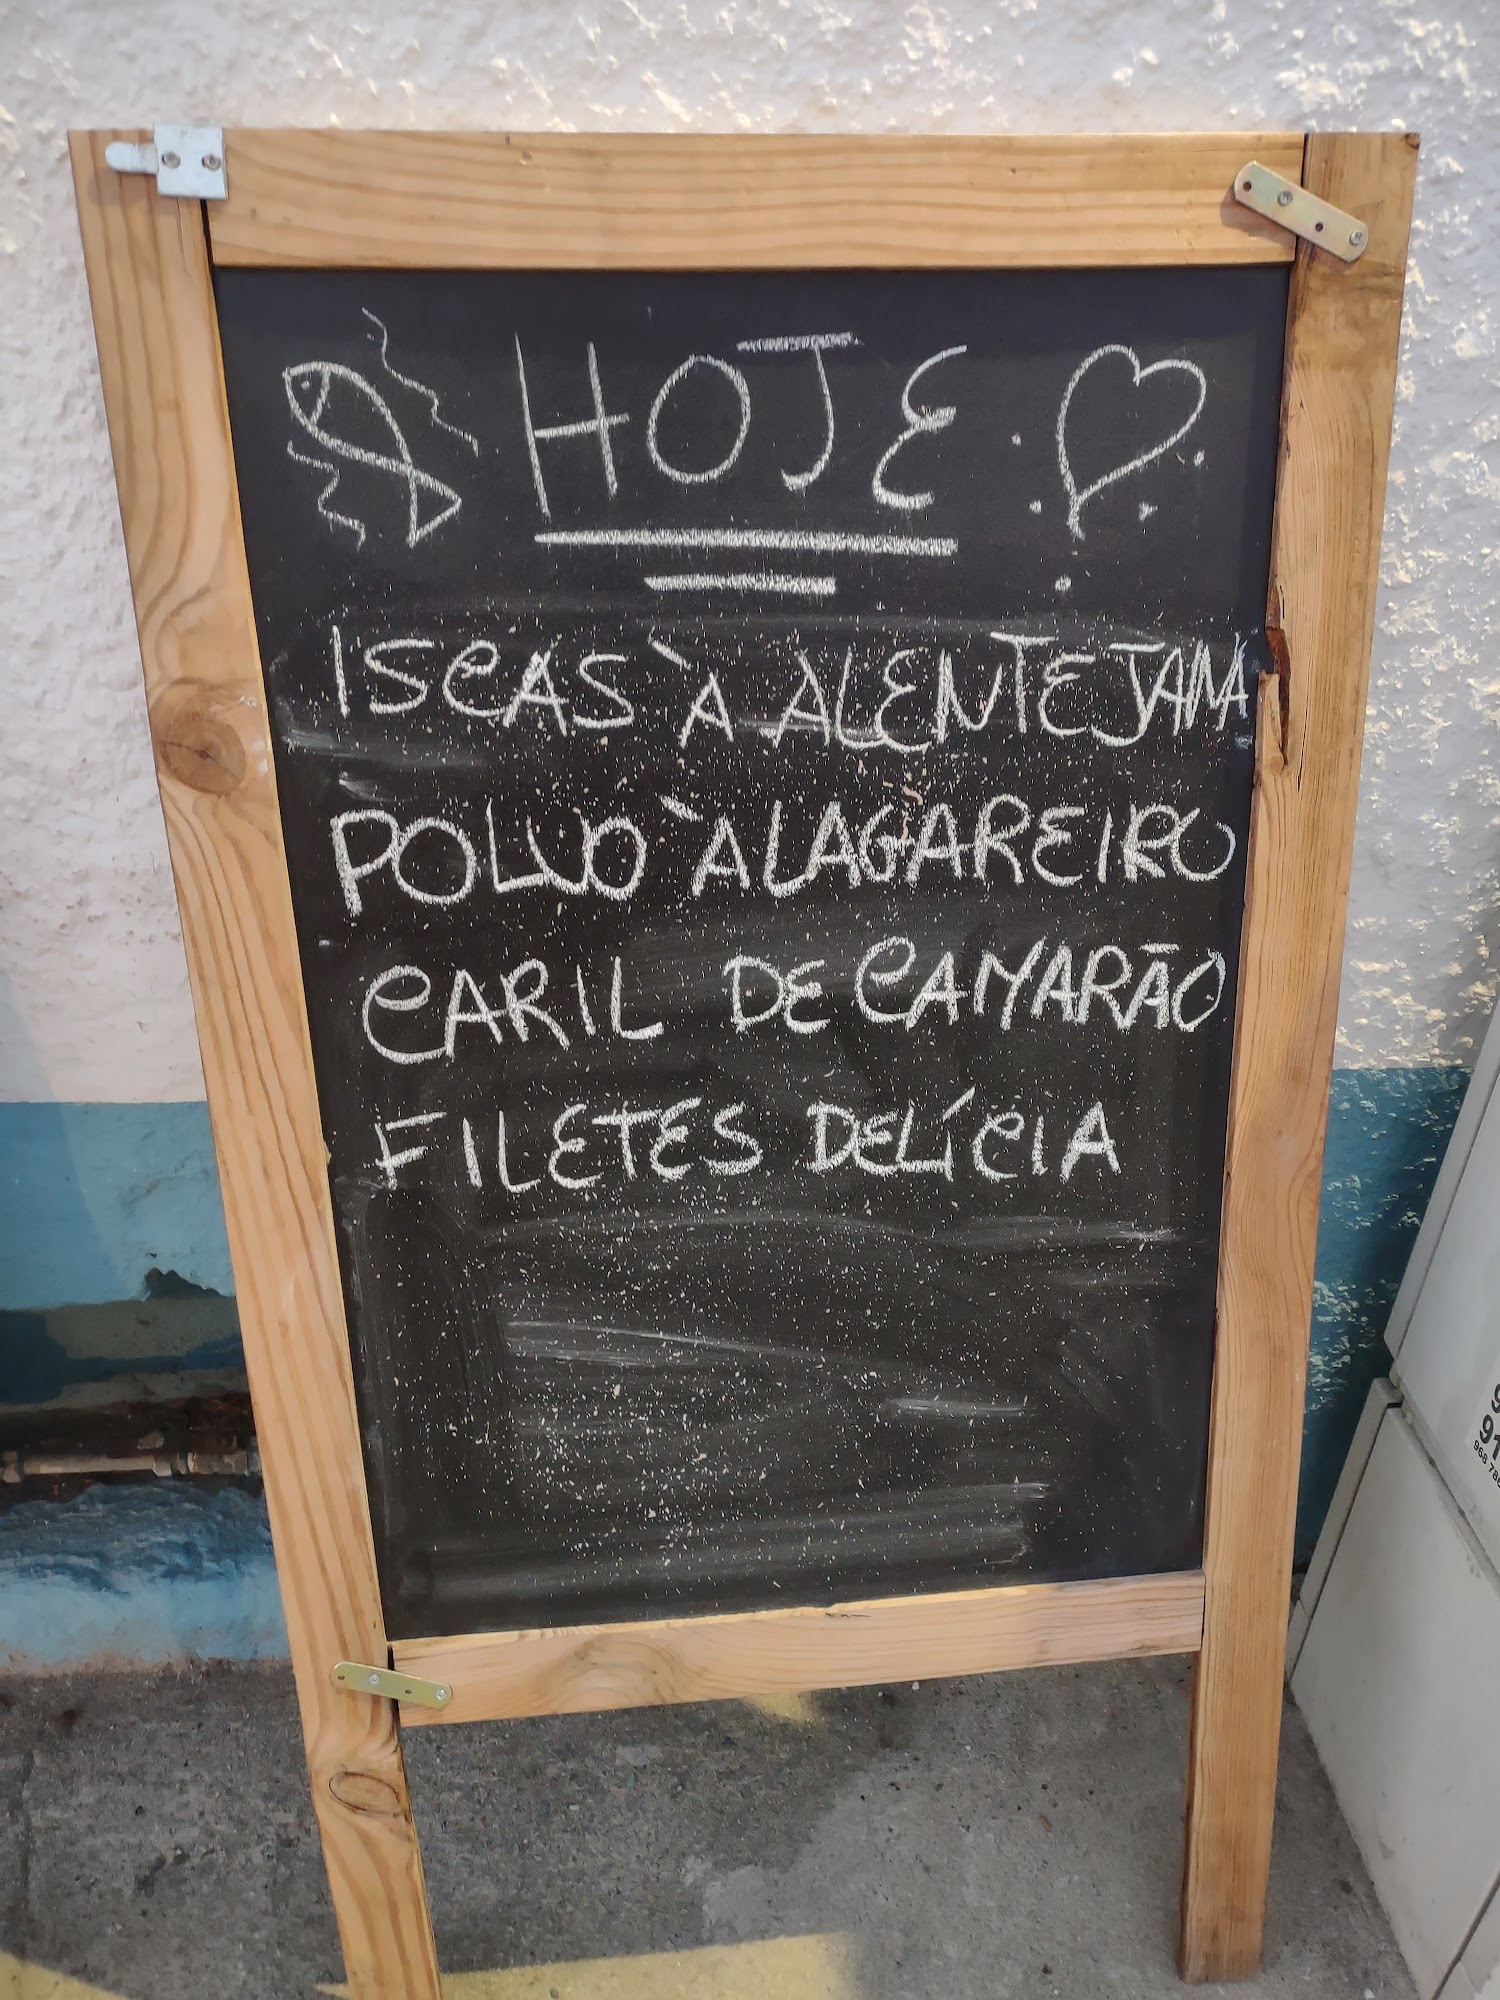 HOJE
ISCAS À ALENTEJANA
POLVO À LAGAREIRO
CARIL DE CAMARÃO
FILETES DELÍCIA
91